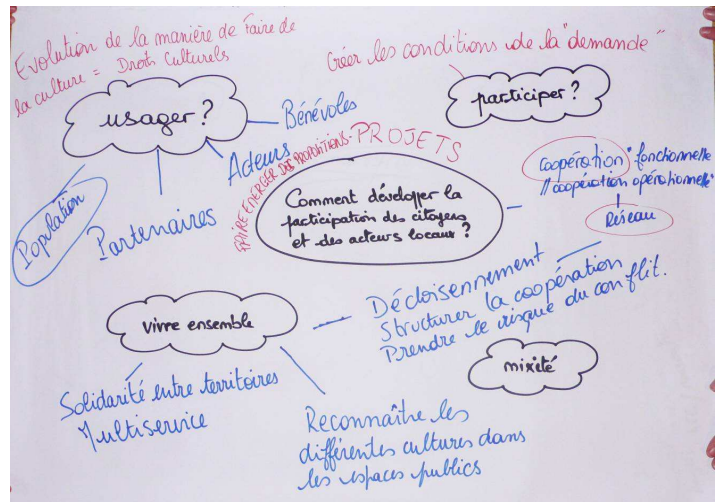 Evolution de la manière de Faire de
la culture = Droits Culturels
Créer les conditions de la "demande"
usager ?
participer ?
Bénévoles
Acteurs
Partenaires
Population
FAIRE EMERGER DES PROPOSITIONS - PROJETS
Comment développer la
participation des citoyens
et des acteurs locaux ?
coopération "fonctionnelle
// coopération opérationnelle"
Réseau
vivre ensemble
Décloisennement
Structurer la coopération
Prendre le risque du conflit.
mixité
Solidarité entre territoires
Multiservice
Reconnaître les
différentes cultures dans
les espaces publics